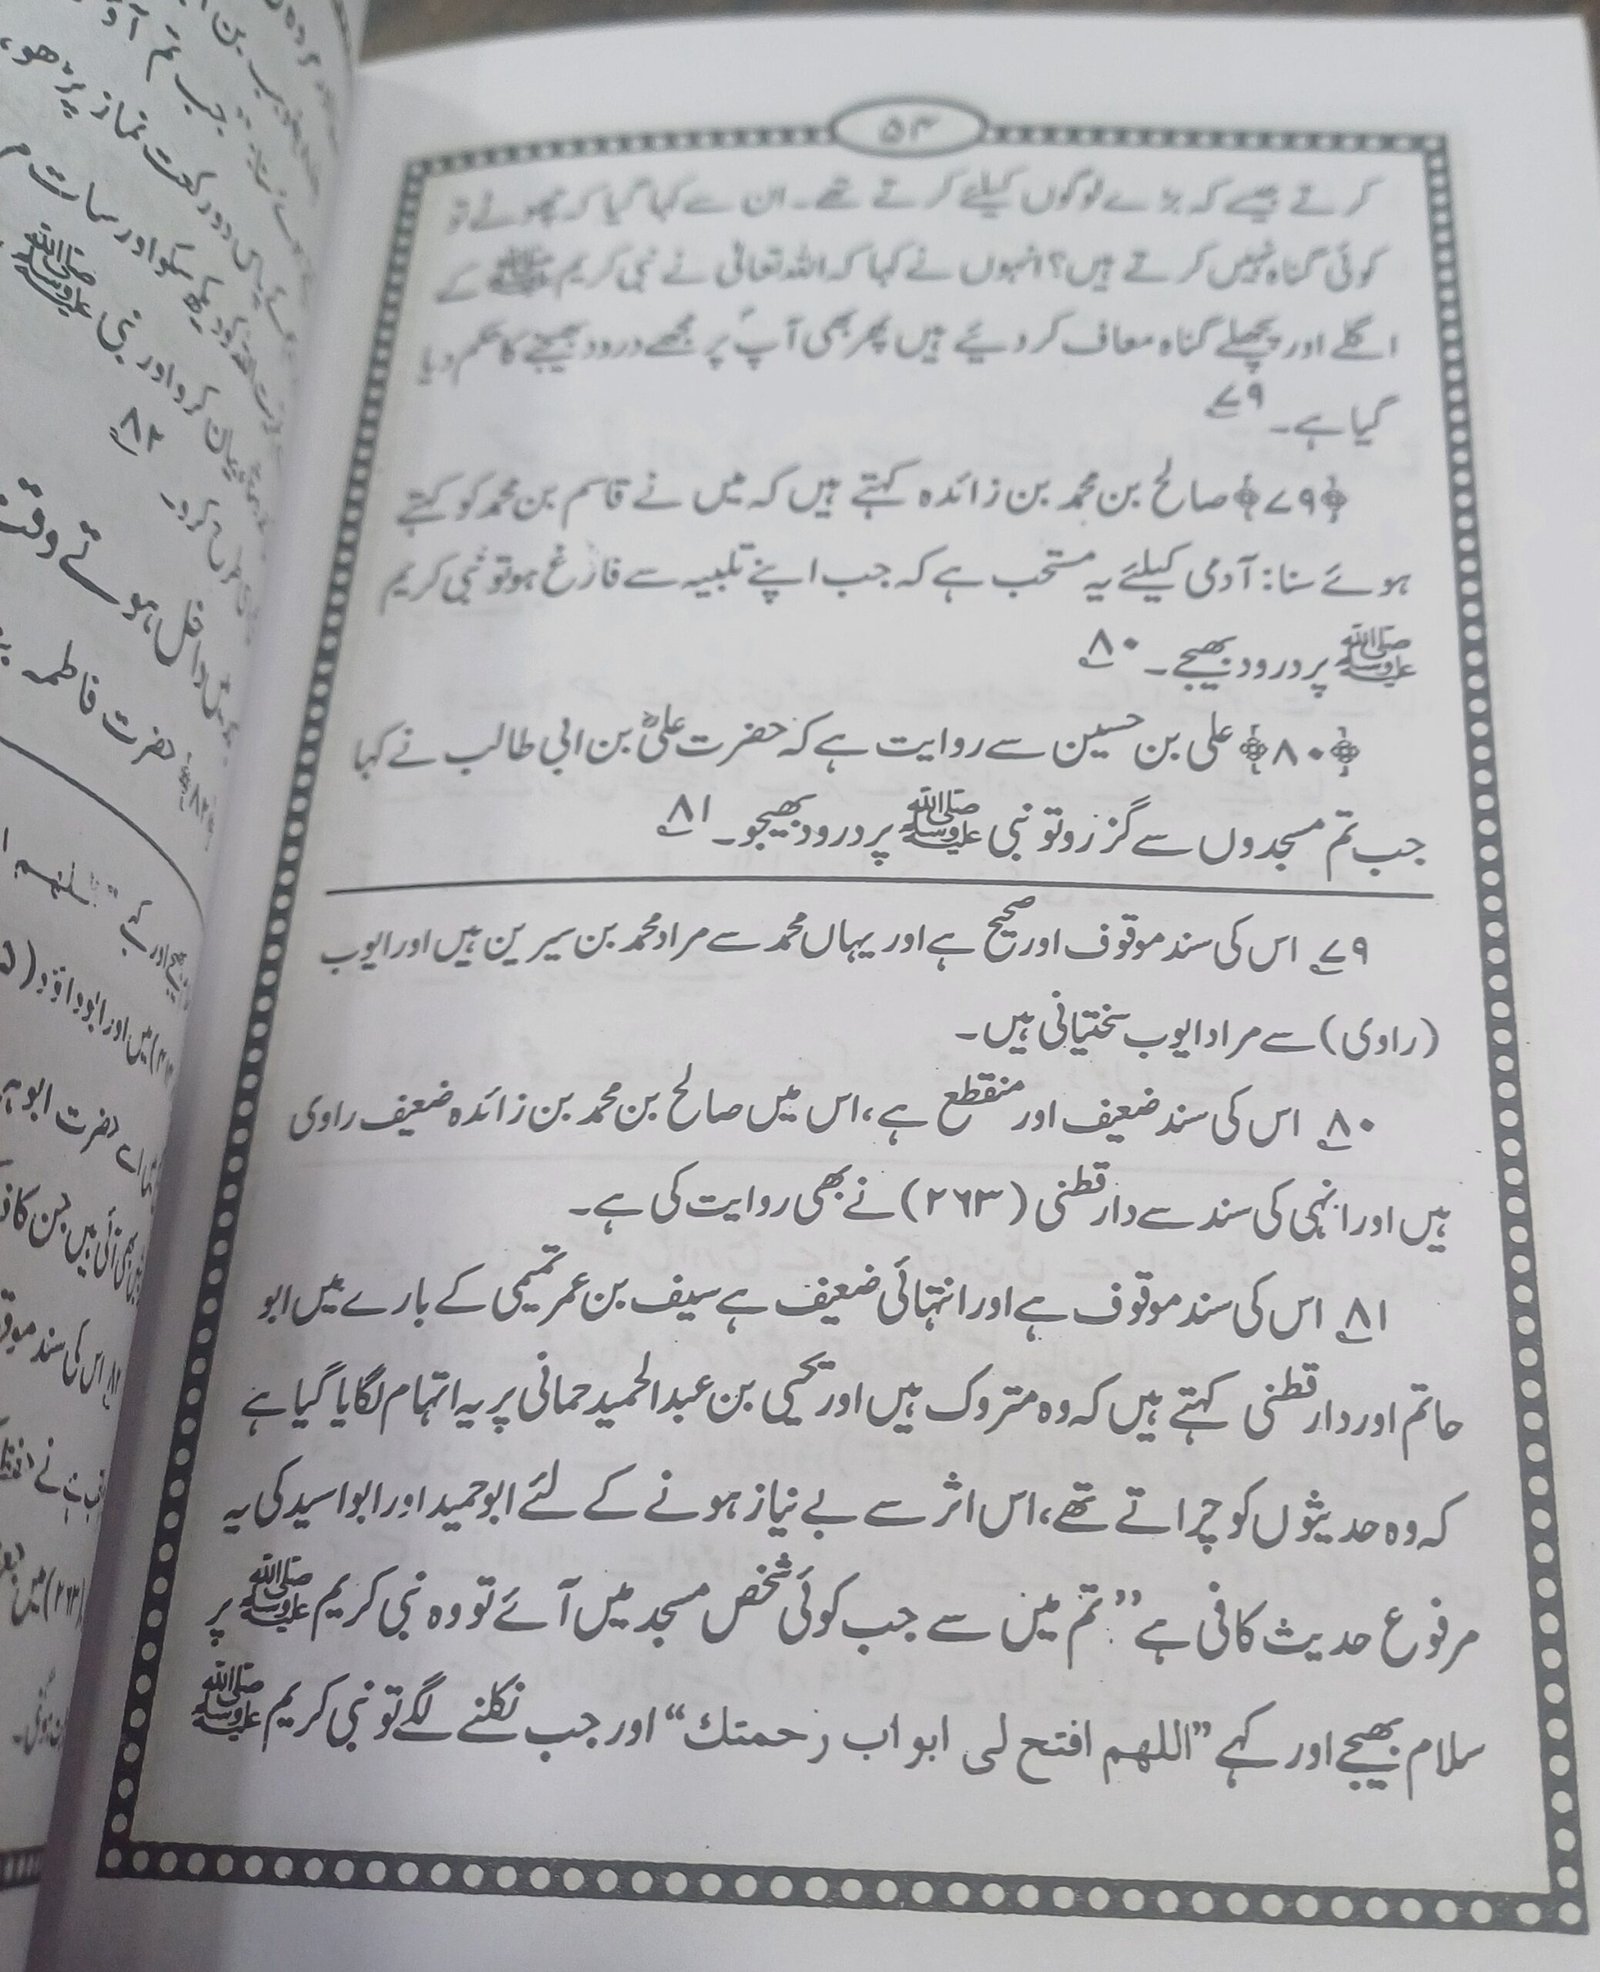 ۵۴
کرتے جیسے کہ بڑے لوگوں کیلئے کرتے تھے۔ ان سے کہا گیا کہ چھوٹے تو
کوئی گناہ نہیں کرتے ہیں؟ انہوں نے کہا کہ اللہ تعالیٰ نے نبی کریم ﷺ کے
اگلے اور پچھلے گناہ معاف کر دیئے ہیں پھر بھی آپؐ پر مجھے درود بھیجنے کا حکم دیا
گیا ہے۔ ۷۹
﴿۷۹﴾ صالح بن محمد بن زائدہ کہتے ہیں کہ میں نے قاسم بن محمد کو کہتے
ہوئے سنا: آدمی کیلئے یہ مستحب ہے کہ جب اپنے تلبیہ سے فارغ ہو تو نبی کریم
ﷺ پر درود بھیجے۔ ۸۰
﴿۸۰﴾ علی بن حسین سے روایت ہے کہ حضرت علیؓ بن ابی طالب نے کہا
جب تم مسجدوں سے گزرو تو نبی ﷺ پر درود بھیجو۔ ۸۱
۷۹ اس کی سند موقوف اور صحیح ہے اور یہاں محمد سے مراد محمد بن سیرین ہیں اور ایوب
(راوی) سے مراد ایوب سختیانی ہیں۔
۸۰ اس کی سند ضعیف اور منقطع ہے، اس میں صالح بن محمد بن زائدہ ضعیف راوی
ہیں اور انہی کی سند سے دارقطنی (۲۶۳) نے بھی روایت کی ہے۔
۸۱ اس کی سند موقوف ہے اور انتہائی ضعیف ہے سیف بن عمر تمیمی کے بارے میں ابو
حاتم اور دارقطنی کہتے ہیں کہ وہ متروک ہیں اور یحییٰ بن عبدالحمید حمانی پر یہ اتہام لگایا گیا ہے
کہ وہ حدیثوں کو چراتے تھے، اس اثر سے بے نیاز ہونے کے لئے ابوحمید اور ابواسید کی یہ
مرفوع حدیث کافی ہے ”تم میں سے جب کوئی شخص مسجد میں آئے تو وہ نبی کریم ﷺ پر
سلام بھیجے اور کہے ”اللهم افتح لی ابواب رحمتك“ اور جب نکلنے لگے تو نبی کریم ﷺ